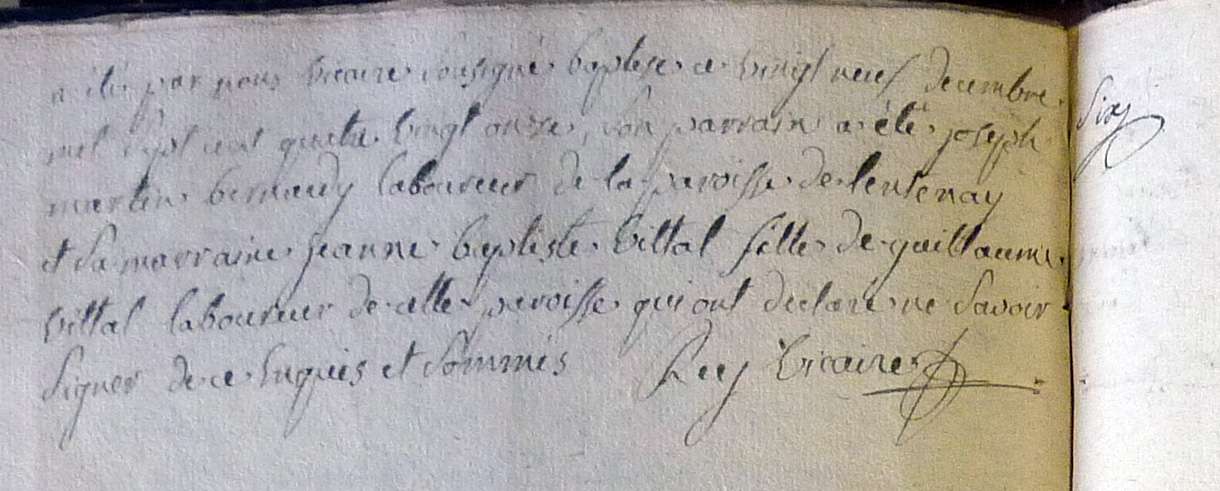 a été par nous vicaire sousigné baptisé ce vingt neuf decembre
mil sept cent quatre vingt onze, son parrain a été joseph
martin bernardy laboureur de la paroisse de lentenay
et sa marraine jeanne baptiste vittal fille de guillaume
vittal laboureur de cette paroisse qui ont declaré ne savoir
signer de ce enquis et sommés vicaire